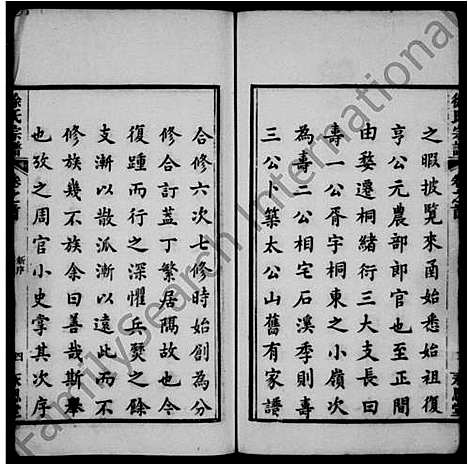 之暇披覽來函始悉始祖復
亨公元農部郎官也至正間
由婺遷桐緒衍三大支長曰
壽一公胥宇桐東之小嶺次
為壽二公相宅石溪季則壽
三公卜築太公山舊有家譜
合修六次七修時始創為分
修合訂蓋丁繁居隅故也今
復踵而行之深懼兵燹之餘
支漸以散派漸以遠此而不
修族幾不族余曰善哉斯舉
也攷之周官小史掌其次序
徐氏宗譜
新序
四
FamilySearch International